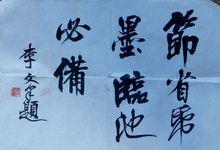 節省帋
墨臨池
必備
李文𠦑題